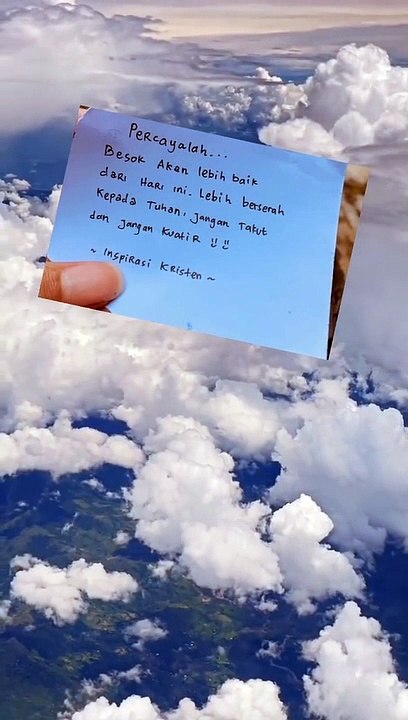 Percayalah...
Besok Akan lebih baik
dari Hari ini. Lebih berserah
Kepada Tuhan, jangan Takut
dan jangan Kuatir
~ Inspirasi Kristen ~